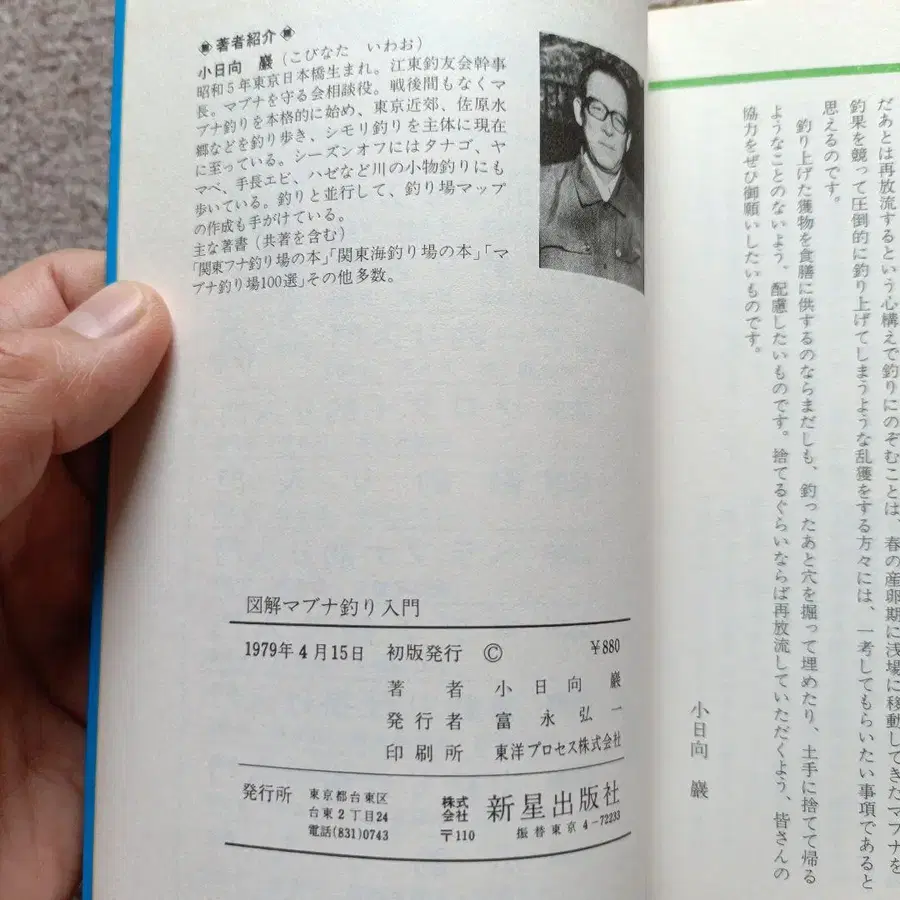 著者紹介
小日向 巖（こびなた いわお）
昭和5年東京日本橋生まれ。江東釣友会幹事
長。マブナを守る会相談役。戦後間もなくマ
ブナ釣りを本格的に始め、東京近郊、佐原水
郷などを釣り歩き、シモリ釣りを主体に現在
に至っている。シーズンオフにはタナゴ、ヤ
マベ、手長エビ、ハゼなど川の小物釣りにも
歩いている。釣りと並行して、釣り場マップ
の作成も手がけている。
主な著書（共著を含む）
「関東フナ釣り場の本」「関東海釣り場の本」「マ
ブナ釣り場100選」その他多数。
図解マブナ釣り入門
1979年4月15日 初版発行 © ¥880
著者 小日向 巖
発行者 富永弘一
印刷所 東洋プロセス株式会社
発行所 東京都台東区
台東2丁目24
電話(831)0743
株式会社 新星出版社
〒110 振替東京4-72233
だあとは再放流するという心構えで釣りにのぞむことは、春の産卵期に浅場に移動してきたマブナを
釣果を競って圧倒的に釣り上げてしまうような乱獲をする方々には、一考してもらいたい事項であると
思えるのです。
釣り上げた獲物を食膳に供するのならまだしも、釣ったあと穴を掘って埋めたり、土手に捨てて帰る
ようなことのないよう、配慮したいものです。捨てるぐらいならば再放流していただくよう、皆さんの
協力をぜひ御願いしたいものです。
小日向 巖